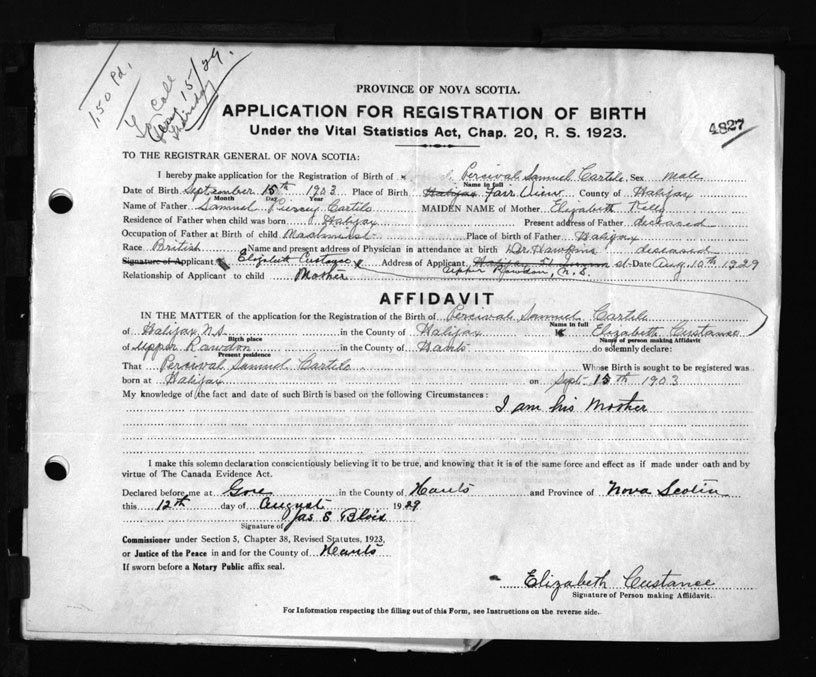 1.50 Pd.
Call
15/29.
PROVINCE OF NOVA SCOTIA.
APPLICATION FOR REGISTRATION OF BIRTH
Under the Vital Statistics Act, Chap. 20, R. S. 1923.
4827
TO THE REGISTRAR GENERAL OF NOVA SCOTIA:
I hereby make application for the Registration of Birth of Percival Samuel Sex Male
Name in full
Date of Birth September 15th 1903 Place of Birth Halifax Fair View County of Halifax
Month Day Year
Name of Father Samuel MAIDEN NAME of Mother Elizabeth
Residence of Father when child was born Halifax Present address of Father deceased
Occupation of Father at Birth of child Machinist Place of birth of Father Halifax
Race British Name and present address of Physician in attendance at birth Dr Hawkins deceased
Signature of Applicant Elizabeth Custance Address of Applicant Halifax St. Date Aug 10th 1929
Upper Rawdon, N. S.
Relationship of Applicant to child Mother
AFFIDAVIT
IN THE MATTER of the application for the Registration of the Birth of Percival Samuel
Name in full
of Halifax N.S. in the County of Halifax Elizabeth Custance
Birth place Name of person making Affidavit
of Upper Rawdon in the County of Hants do solemnly declare:
Present residence
That Percival Samuel Whose Birth is sought to be registered was
born at Halifax on Sept 15th 1903
My knowledge of the fact and date of such Birth is based on the following Circumstances:
I am his Mother
I make this solemn declaration conscientiously believing it to be true, and knowing that it is of the same force and effect as if made under oath and by
virtue of The Canada Evidence Act.
Declared before me at Gore in the County of Hants and Province of Nova Scotia
this 12th day of August 1929
Jas S Blois
Signature of
Commissioner under Section 5, Chapter 38, Revised Statutes, 1923,
or Justice of the Peace in and for the County of Hants
If sworn before a Notary Public affix seal.
Elizabeth Custance
Signature of Person making Affidavit.
For Information respecting the filling out of this Form, see Instructions on the reverse side.